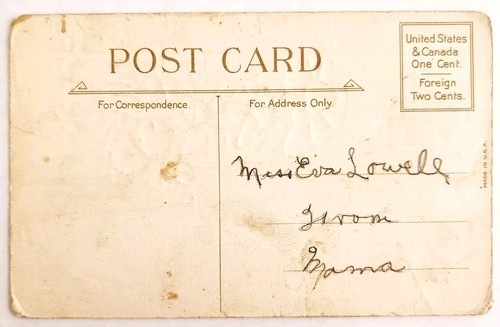 POST CARD
United States
& Canada
One Cent.
Foreign
Two Cents.
For Correspondence.
For Address Only.
MADE IN U.S.A.
Miss Eva Lowell
From
Mama